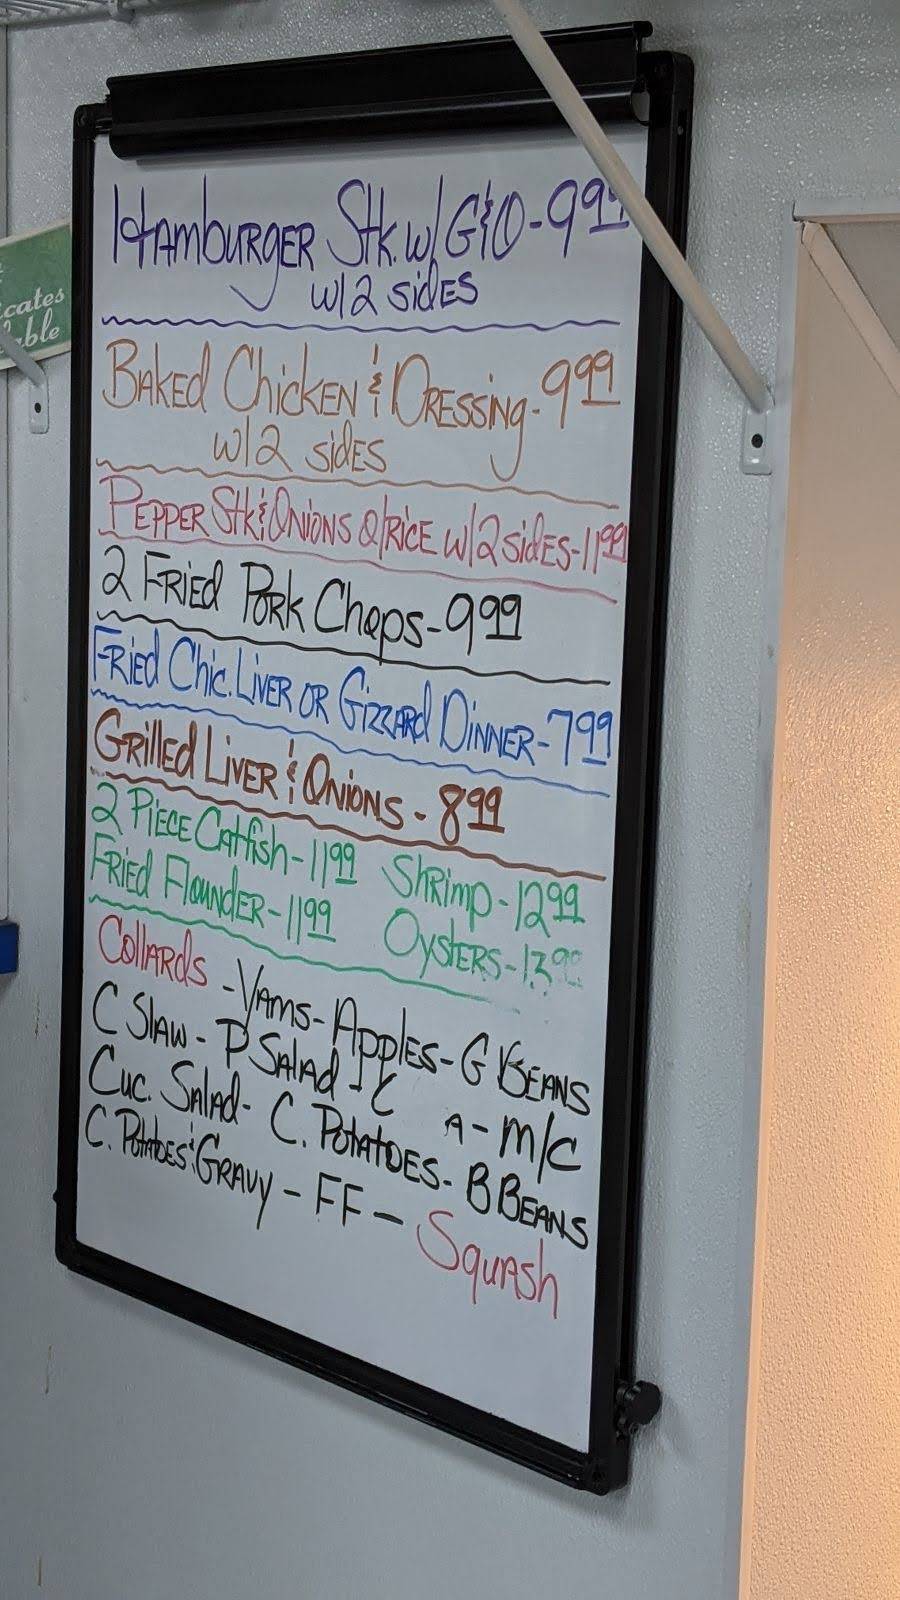 HAMBURGER Stk. w/ G&O - 9.99
w/ 2 sides
BAKED Chicken & DRESSING - 9.99
w/ 2 sides
PEPPER Stk & ONIONS O/RICE w/ 2 sides - 11.99
2 FRiED PORK Chops - 9.99
FRiED Chic. LiVER OR GizzARD DiNNER - 7.99
GRilled LiVER & ONiONS - 8.99
2 PiECE Catfish - 11.99 ShRimp - 12.99
FRiED FlouNDER - 11.99 OYSTERS - 13.99
CollARDS - YAMS - APPLES - G BEANS
C SlAW - P SAlAD - C A - M/C
Cuc. SAlAD - C. POTATOES - B BEANS
C. POTATOES & GRAVY - FF - SquASh
cates
able